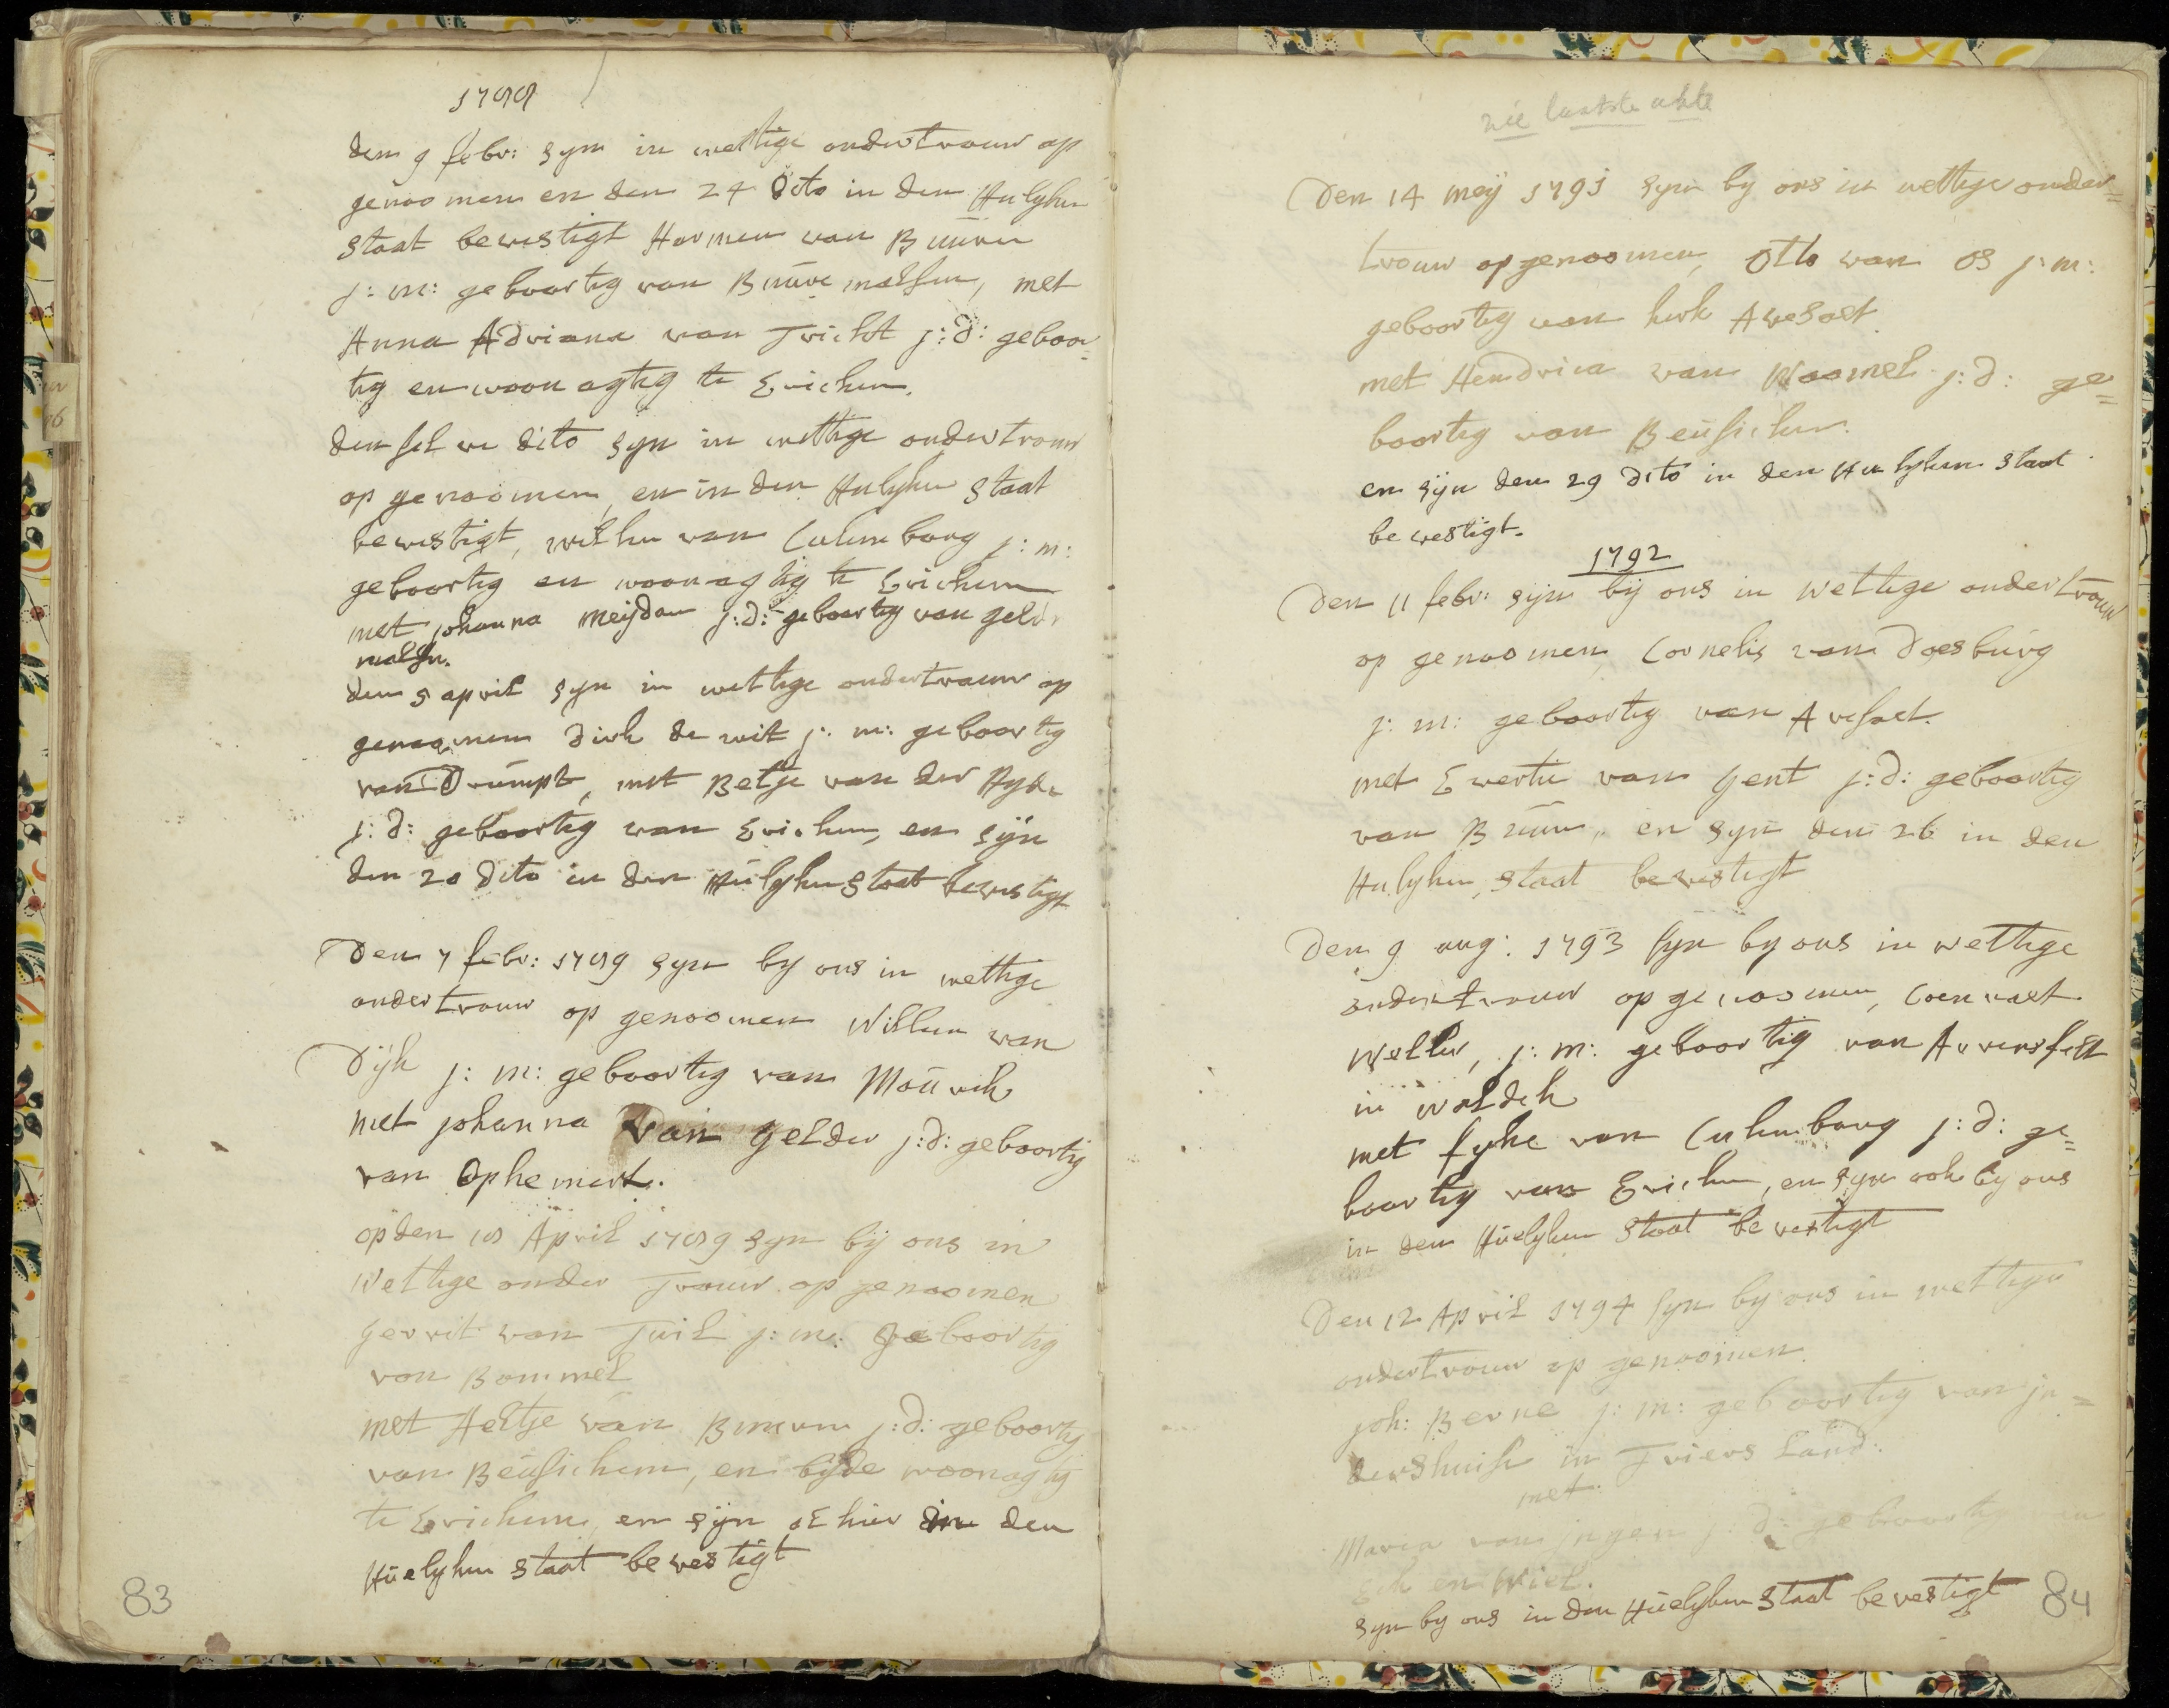 1788
den 9 febr: syn in wettige ondertrouw op
genoomen en den 24 dito in den Hulyken
staat bevestigt Harmen van Buuren
j: m: geboortig van Buuremalsen, met
Anna Adriana van Tricht j: d: geboor-
tig en woonagtig te Erichem.
den selve dito syn in wettige ondertrouw
op genoomen, en in den Hulyken staat
bevestigt, willem van Culenborg j: m:
geboortig en woonagtig te Erichem
met johanna meijdam j: d: geboortig van gelder
malsen.
den 5 april syn in wettige ondertrouw op
genoomen Dirk de wit j: m: geboortig
van Drumpt, met Betje van der
j: d: geboortig van Erichem, en sÿn
den 20 dito in den Hulyken staat bevestigt
Den 7 febr: 1789 syn by ons in wettige
ondertrouw op genoomen Willem van
Dijk j: m: geboortig van Mourik
met johanna van Gelder j: d: geboortig
van Ophemert.
op den 18 April 1789 syn bÿ ons in
wettige onder Trouw op genoomen
Gerrit van Tuil j: m: geboortig
van Bommel
met Aeltje van j: d: geboortig
van Beusichem, en byde woonagtig
te Erichem, en sÿn al hier in den
Huelyken staat bevestigt
83
zie laatste akte
Den 14 meÿ 1791 syn by ons in wettige onder=
trouw op genoomen, Otto van Os j: m:
geboortig van kerk Avesaet
met Hendrica van Woomel j: d: ge=
boortig van Beusichem.
en sÿn den 29 dito in den Hulyken staat
bevestigt.
1792
Den 11 febr: sÿn bÿ ons in wettige ondertrouw
op genoomen Cornelis van Doesburg
j: m: geboortig van Avesaet.
met Evertie van Gent j: d: geboortig
van Buure, en syn den 26 in den
Hulyken, staat bevestigt
Den 9 aug: 1793 syn by ons in wettige
ondertrouw op genoomen, Coenraet
Weller, j: m: geboortig van
in Waldek
met Syke van Culenborg j: d: ge=
boortig van Erichem, en syn ook by ons
in den Huelyken staat bevestigt
Den 12 April 1794 syn by ons in wettige
ondertrouw op genoomen
joh: Berne j: m: geboortig van jn=
dershuise in Triers Land:
met
Maria van jngen j: d: geboortig van
Eck en Wiel.
syn by ons in den Huelyken staat bevestigt
84